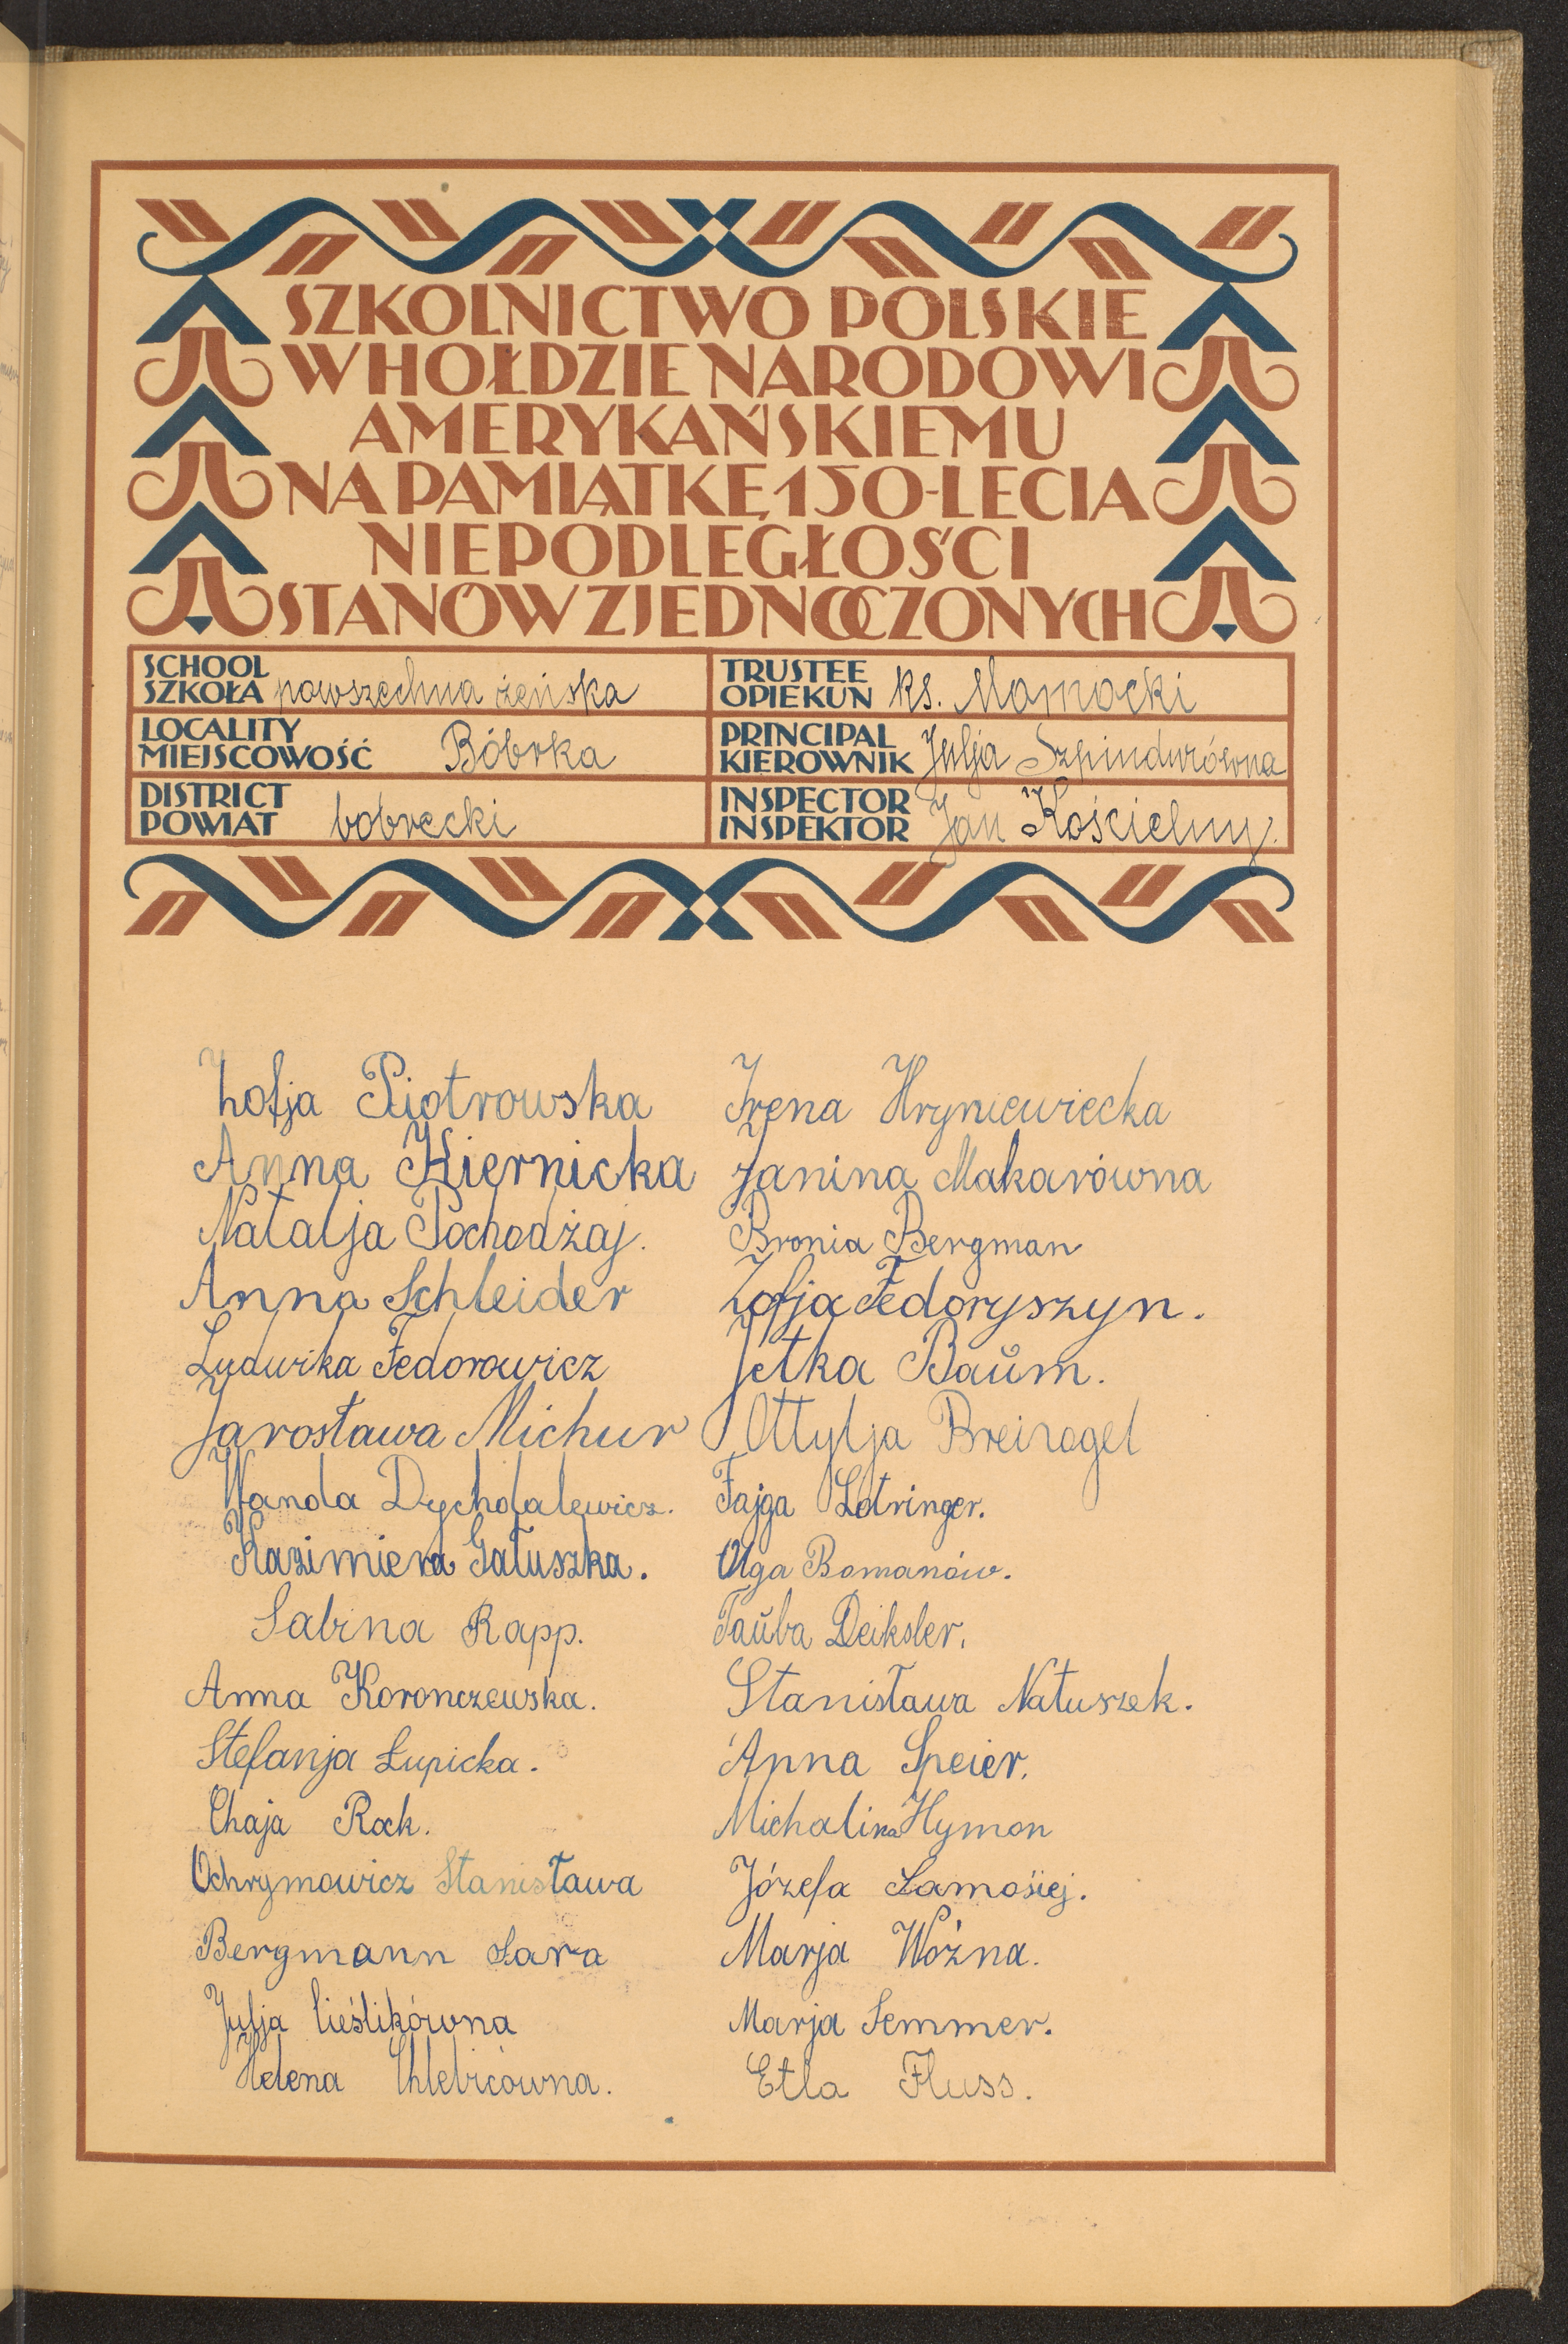 SZKOLNICTWO POLSKIE
W HOŁDZIE NARODOWI
AMERYKAŃSKIEMU
NA PAMIĄTKĘ 150-LECIA
NIEPODLEGŁOŚCI
STANÓW ZJEDNOCZONYCH
SCHOOL
SZKOŁA powszechna żeńska
TRUSTEE
OPIEKUN ks. Mamocki
LOCALITY
MIEJSCOWOŚĆ Bóbrka
PRINCIPAL
KIEROWNIK Julja Szpindurówna
DISTRICT
POWIAT bobrecki
INSPECTOR
INSPEKTOR Jan Kościelny.
Zofja Piotrowska
Anna Kiernicka
Natalja Pochodżaj.
Anna Schleider
Ludwika Fedorowicz
Jarosława Michur
Wanda Dychdalewicz.
Kazimiera Gałuszka.
Sabina Rapp.
Anna Koronczewska.
Stefanja Łupicka.
Chaja Rock.
Ochrymowicz Stanisława
Bergmann Sara
Julja Cieślikówna
Helena Chlebicówna.
Irena Hryniewiecka
Janina Makarówna
Bronia Bergman
Zofja Fedoryszyn.
Jetka Baŭm.
Ottylja Breinagel
Fajga Lotringer.
Olga Romanów.
Taŭba Deiksler.
Stanisława Natuszek.
Anna Speier.
Michalina Hymon
Józefa Łamasiej.
Marja Woźna.
Marja Semmer.
Etla Fluss.